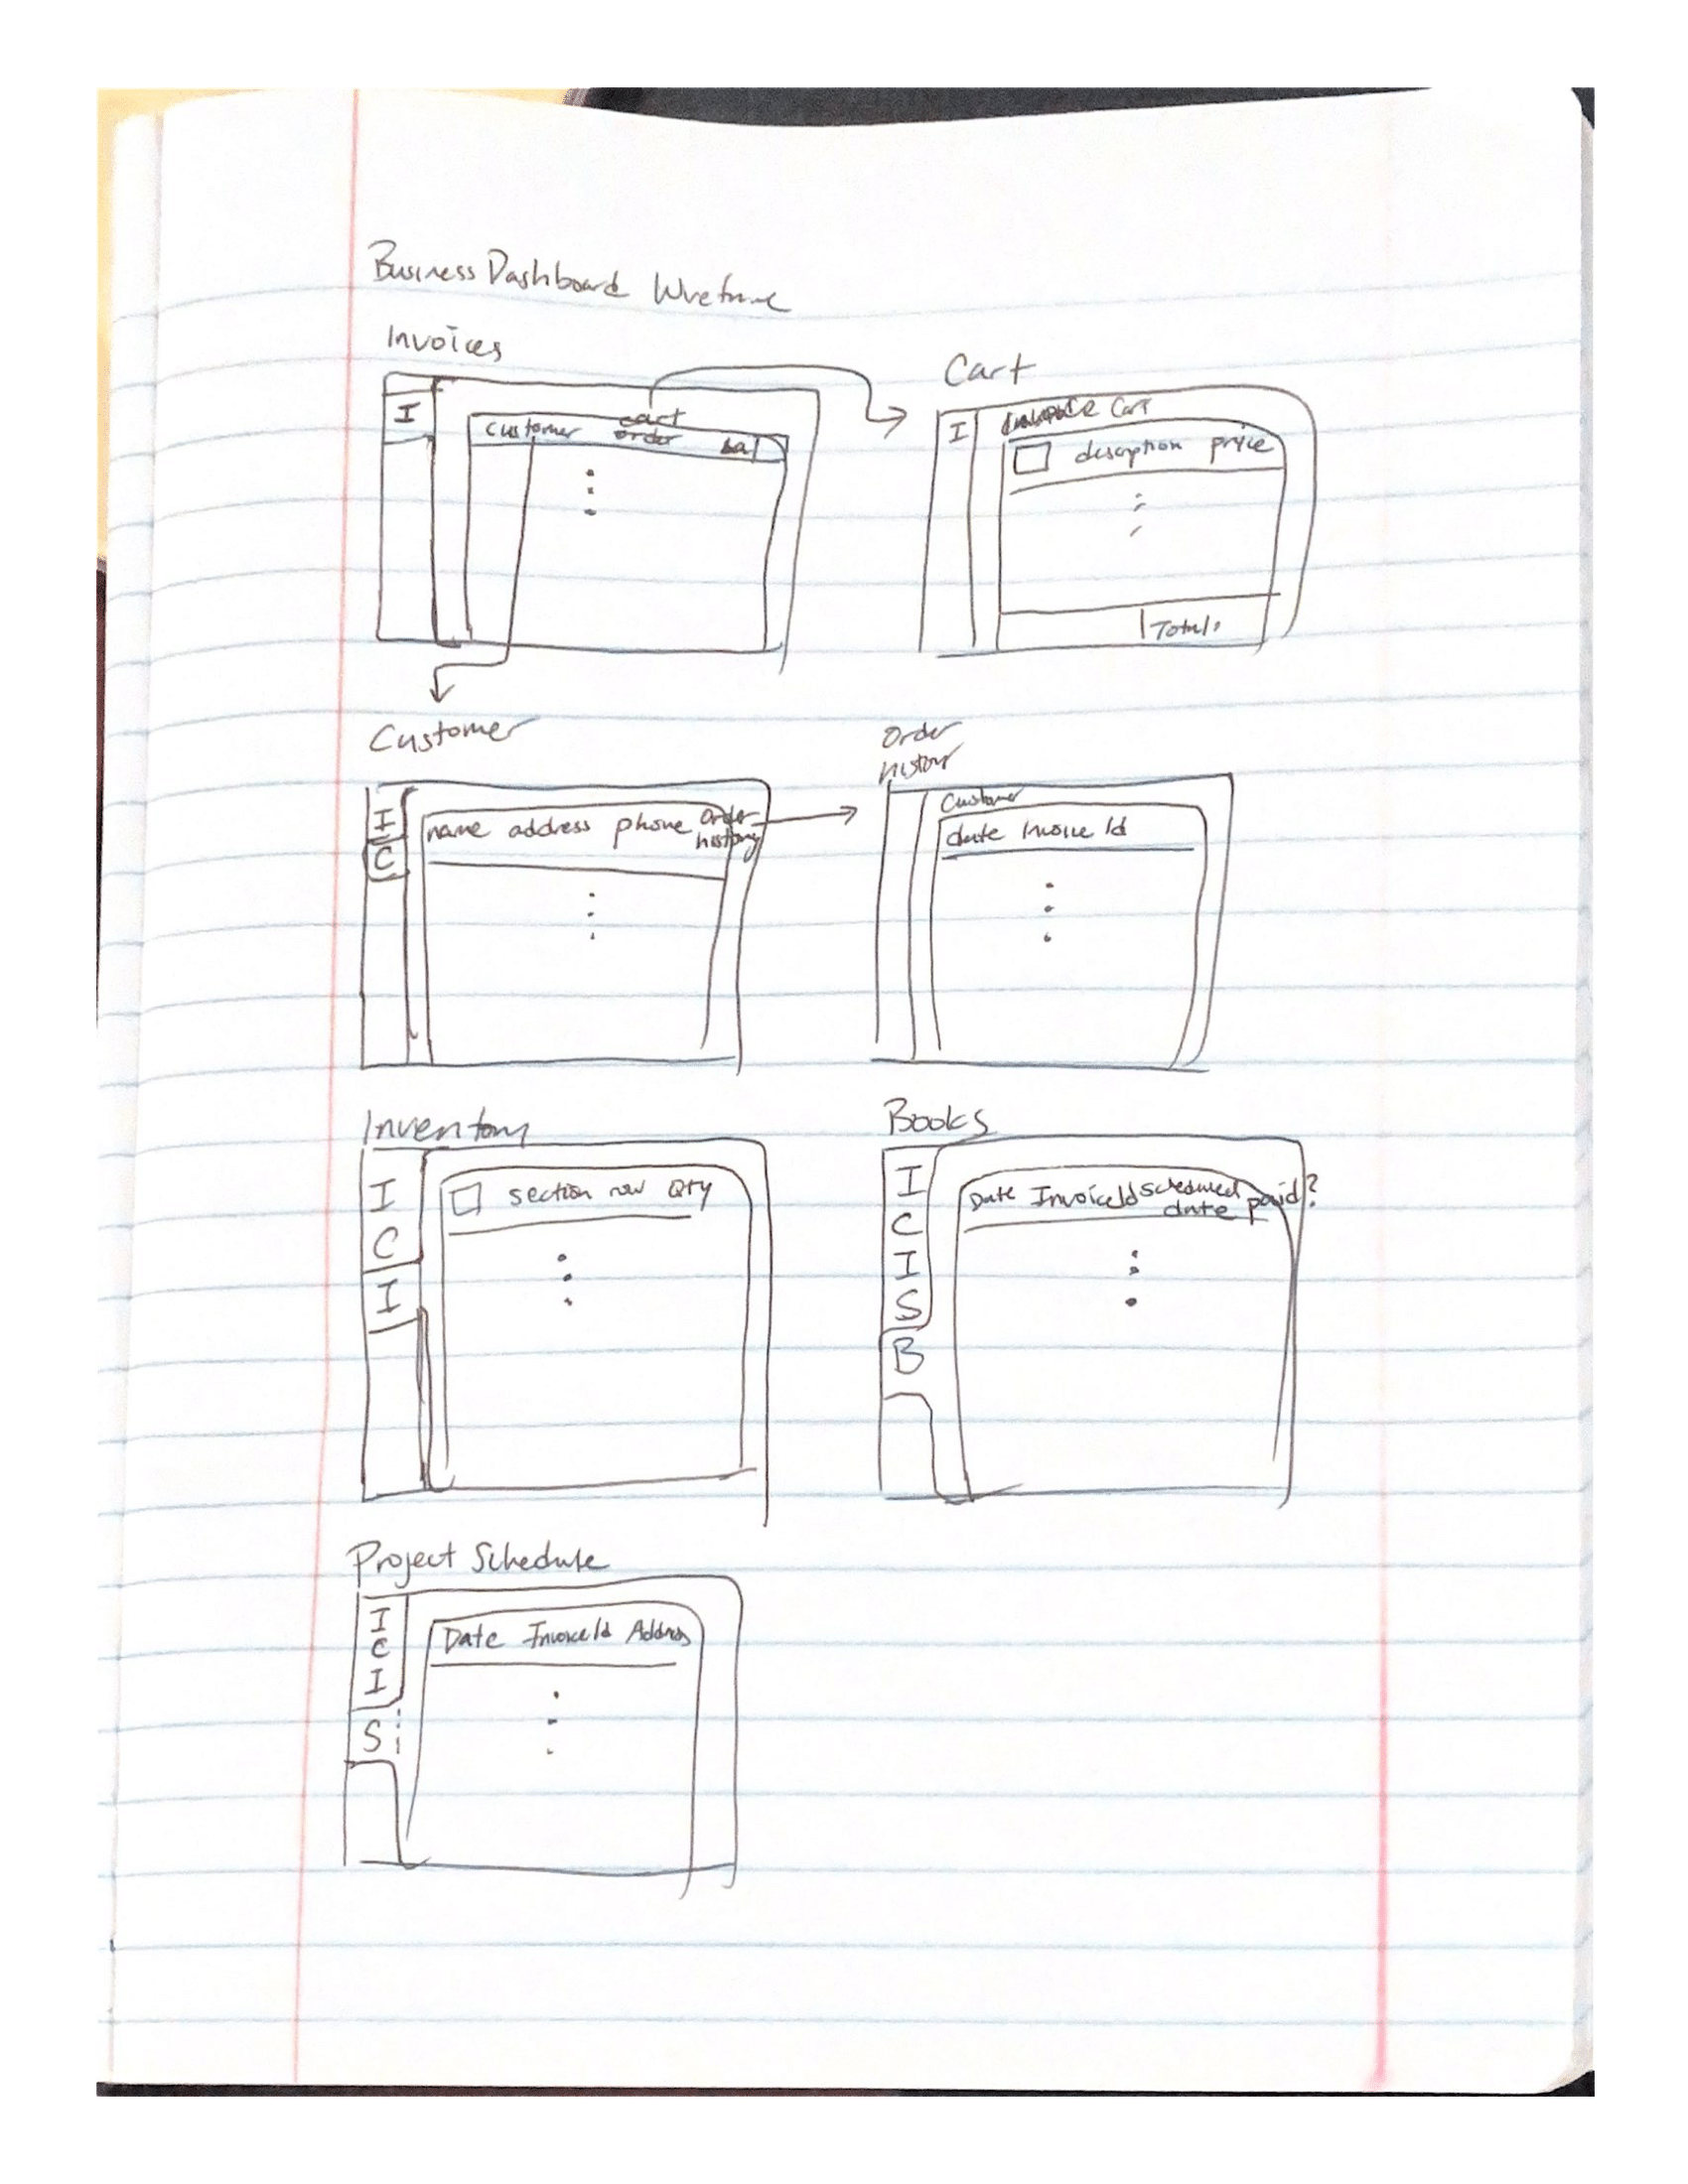 Business Dashboard Wireframe
Invoices
Cart
I
customer cart order bal
I
Cart
description price
Total:
Customer
Order history
I
C
name address phone Order history
Customer
date Invoice Id
Inventory
Books
I
C
I
section row Qty
I
C
I
S
B
Date InvoiceId scheduled date paid?
Project Schedule
I
C
I
S
Date InvoiceId Address